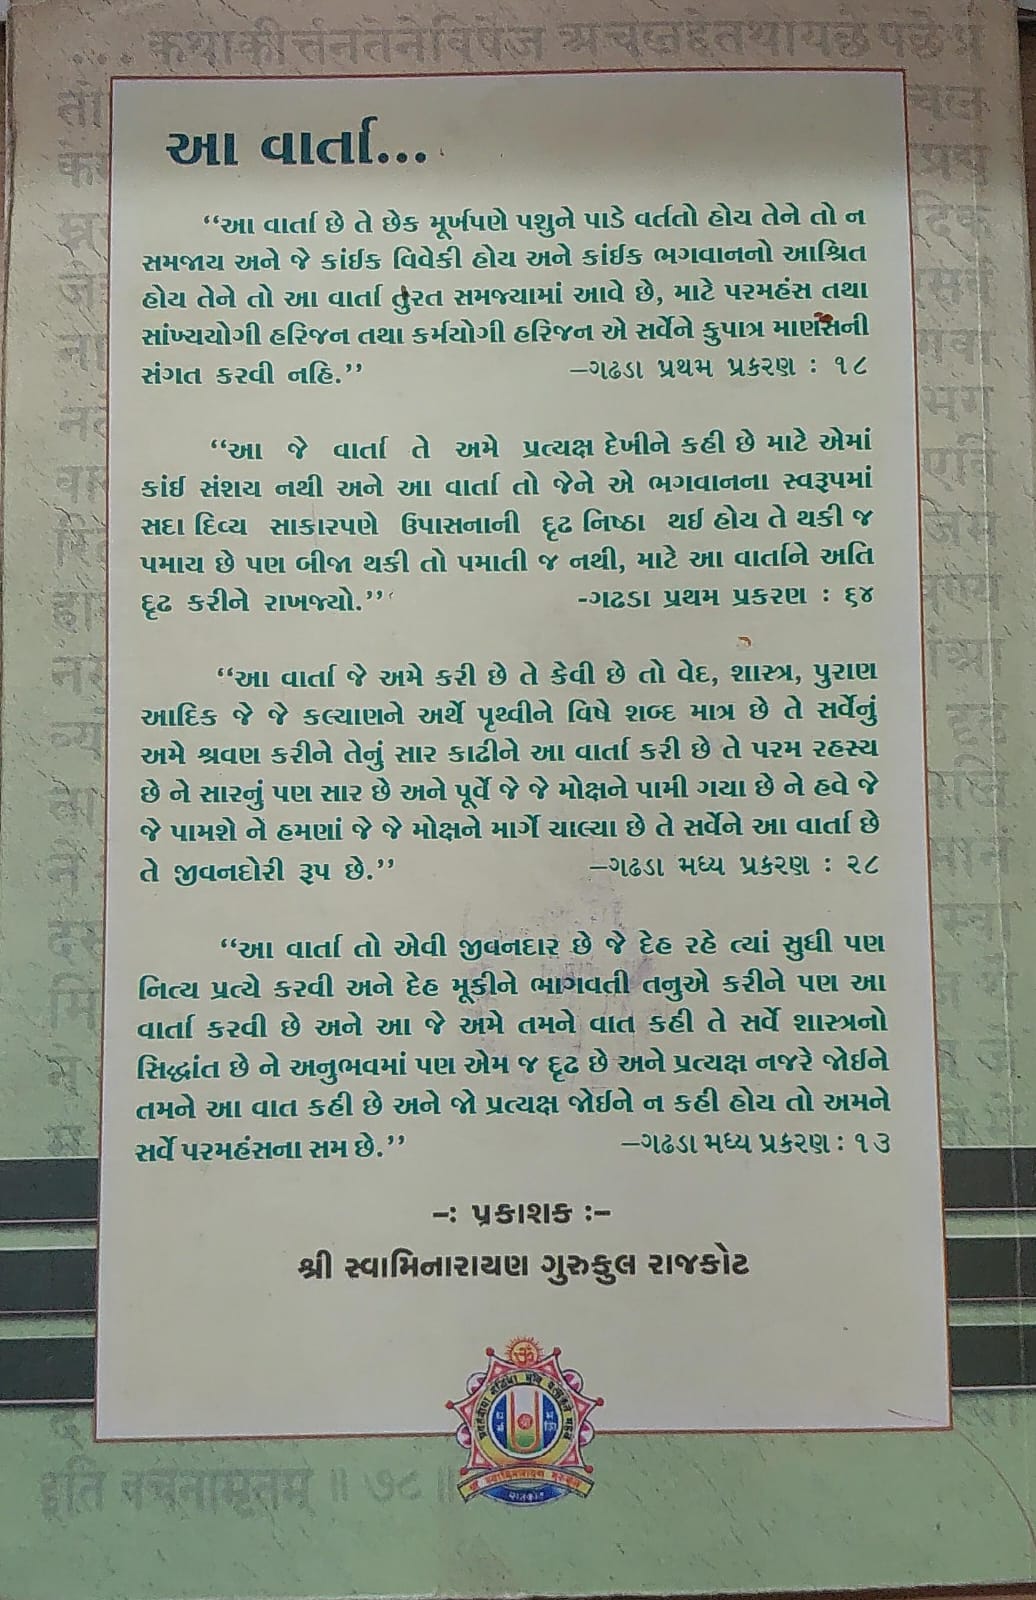 ... कथाकीर्त्तनतेनेविषेज
આ વાર્તા...
“આ વાર્તા છે તે છેક મૂર્ખપણે પશુને પાડે વર્તતો હોય તેને તો ન
સમજાય અને જે કાંઈક વિવેકી હોય અને કાંઈક ભગવાનનો આશ્રિત
હોય તેને તો આ વાર્તા તુરત સમજ્યામાં આવે છે, માટે પરમહંસ તથા
સાંખ્યયોગી હરિજન તથા કર્મયોગી હરિજન એ સર્વેને કુપાત્ર માણસની
સંગત કરવી નહિ.” –ગઢડા પ્રથમ પ્રકરણ : ૧૮
“આ જે વાર્તા તે અમે પ્રત્યક્ષ દેખીને કહી છે માટે એમાં
કાંઈ સંશય નથી અને આ વાર્તા તો જેને એ ભગવાનના સ્વરૂપમાં
સદા દિવ્ય સાકારપણે ઉપાસનાની દૃઢ નિષ્ઠા થઈ હોય તે થકી જ
પમાય છે પણ બીજા થકી તો પમાતી જ નથી, માટે આ વાર્તાને અતિ
દૃઢ કરીને રાખજ્યો.” -ગઢડા પ્રથમ પ્રકરણ : ૬૪
“આ વાર્તા જે અમે કરી છે તે કેવી છે તો વેદ, શાસ્ત્ર, પુરાણ
આદિક જે જે કલ્યાણને અર્થે પૃથ્વીને વિષે શબ્દ માત્ર છે તે સર્વેનું
અમે શ્રવણ કરીને તેનું સાર કાઢીને આ વાર્તા કરી છે તે પરમ રહસ્ય
છે ને સારનું પણ સાર છે અને પૂર્વે જે જે મોક્ષને પામી ગયા છે ને હવે જે
જે પામશે ને હમણાં જે જે મોક્ષને માર્ગે ચાલ્યા છે તે સર્વેને આ વાર્તા છે
તે જીવનદોરી રૂપ છે.” –ગઢડા મધ્ય પ્રકરણ : ૨૮
“આ વાર્તા તો એવી જીવનદાર છે જે દેહ રહે ત્યાં સુધી પણ
નિત્ય પ્રત્યે કરવી અને દેહ મૂકીને ભાગવતી તનુએ કરીને પણ આ
વાર્તા કરવી છે અને આ જે અમે તમને વાત કહી તે સર્વે શાસ્ત્રનો
સિદ્ધાંત છે ને અનુભવમાં પણ એમ જ દૃઢ છે અને પ્રત્યક્ષ નજરે જોઈને
તમને આ વાત કહી છે અને જો પ્રત્યક્ષ જોઈને ન કહી હોય તો અમને
સર્વે પરમહંસના સમ છે.” –ગઢડા મધ્ય પ્રકરણ : ૧૩
–: પ્રકાશક :–
શ્રી સ્વામિનારાયણ ગુરુકુલ રાજકોટ
શ્રી સ્વામિનારાયણ ગુરુકુલ
રાજકોટ
इति वचनामृतम् ॥ ७८ ॥